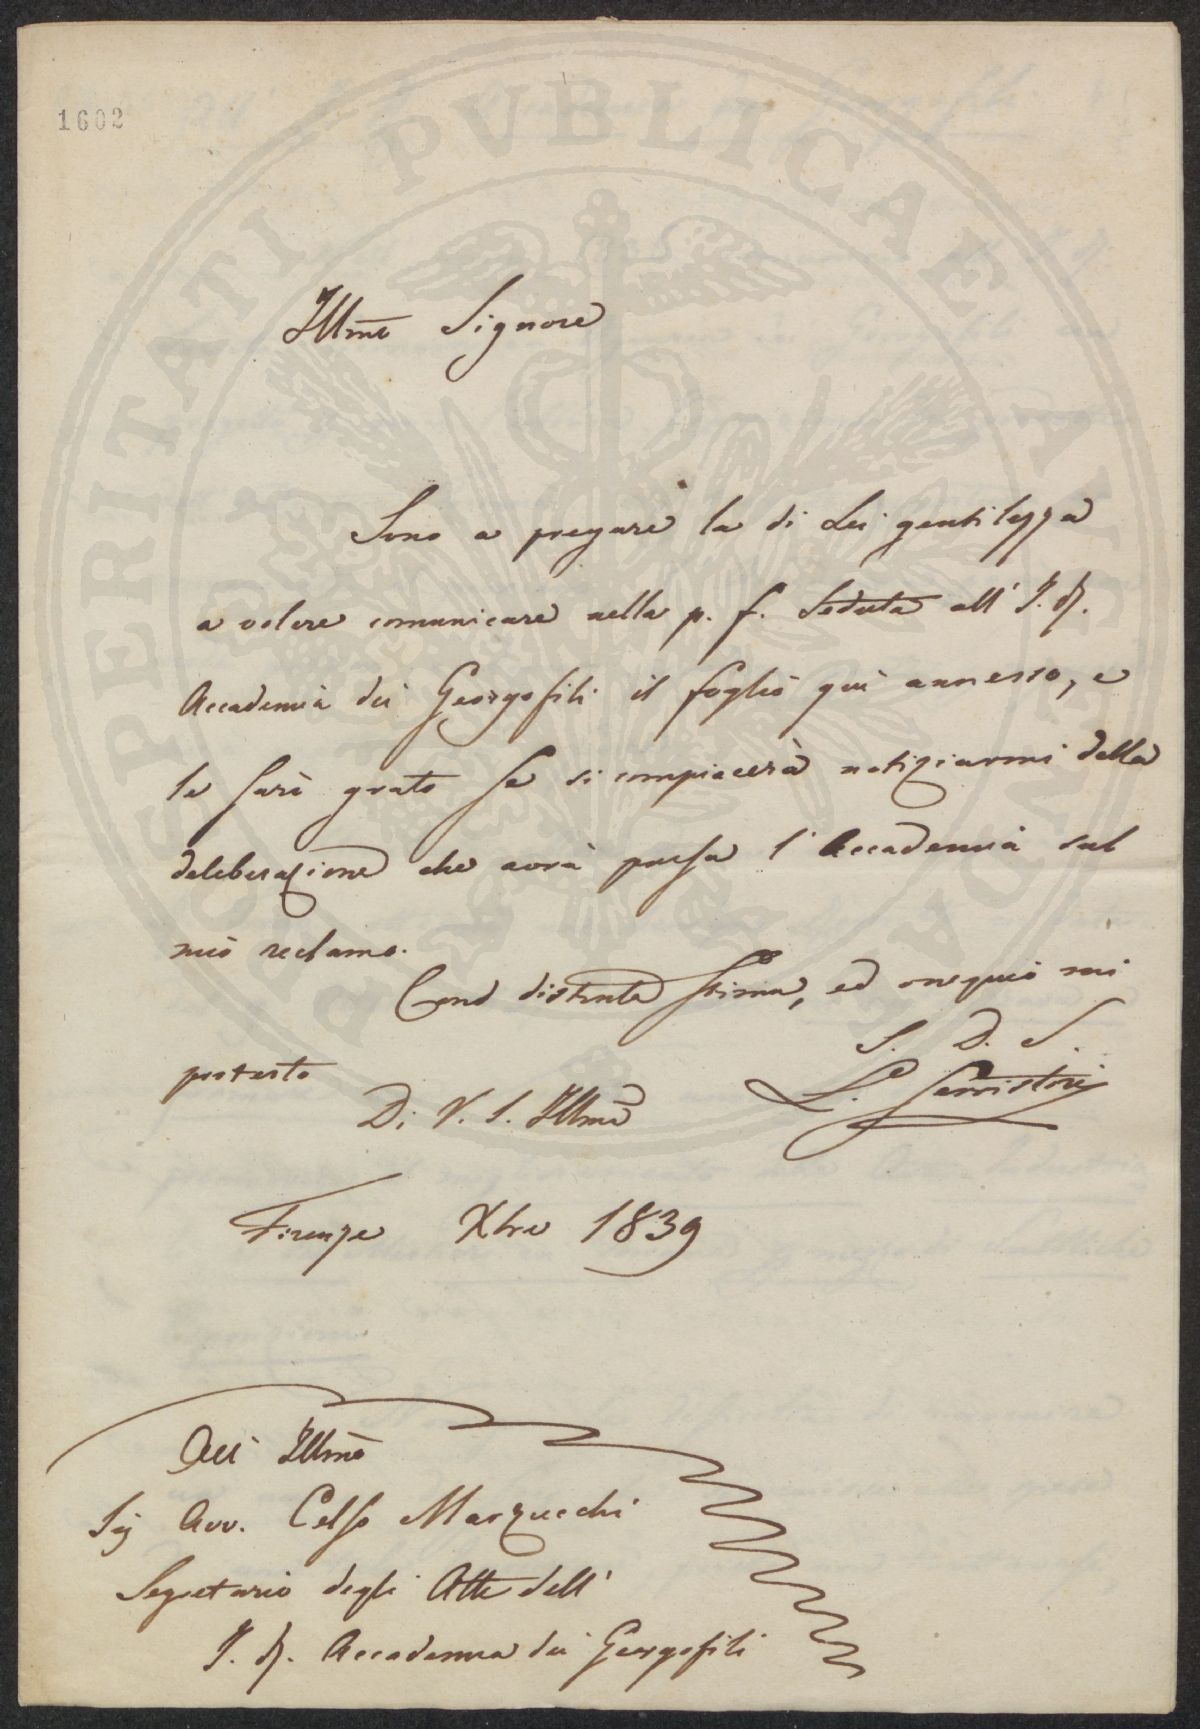 1602
PROSPERITATI PVBLICAE AVGENDAE
Illmo Signore
Sono a pregare la di Lei gentilezza
a volere comunicare nella p. f. Seduta all' I. R.
Accademia dei Georgofili il foglio quì annesso, e
le sarò grato se si compiacerà notiziarmi della
deleberazione che avrà presa l'Accademia sul
mio reclamo.
Cond distinta stima, ed ossequio mi
protesto
S. D. S.
Di V. S. Illma
L. Serristori
Firenze Xbre 1839
All' Illmo
Sig Avv. Celso Marzucchi
Segretario degli Atti dell'
I. R. Accademia dei Georgofili